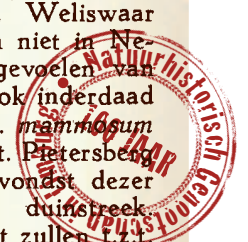 Weliswaar
niet in Ne-
gevoelen van
ok inderdaad
mammosum
t. Pietersberg
vondst dezer
duinstreek.
t zullen t.z.t
Natuurhistorisch Genootschap
100 JAAR